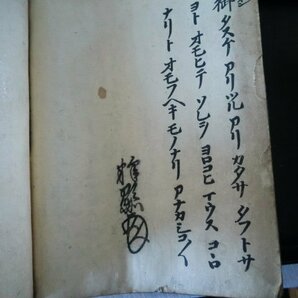 御タスケ アリツル アリカタサ タフトサ
ヨト オモヒテ ソレヲ ヨロコヒ マウス コヽロ
ナリト オモフヘキ モノナリ アナカシコ〱
釋